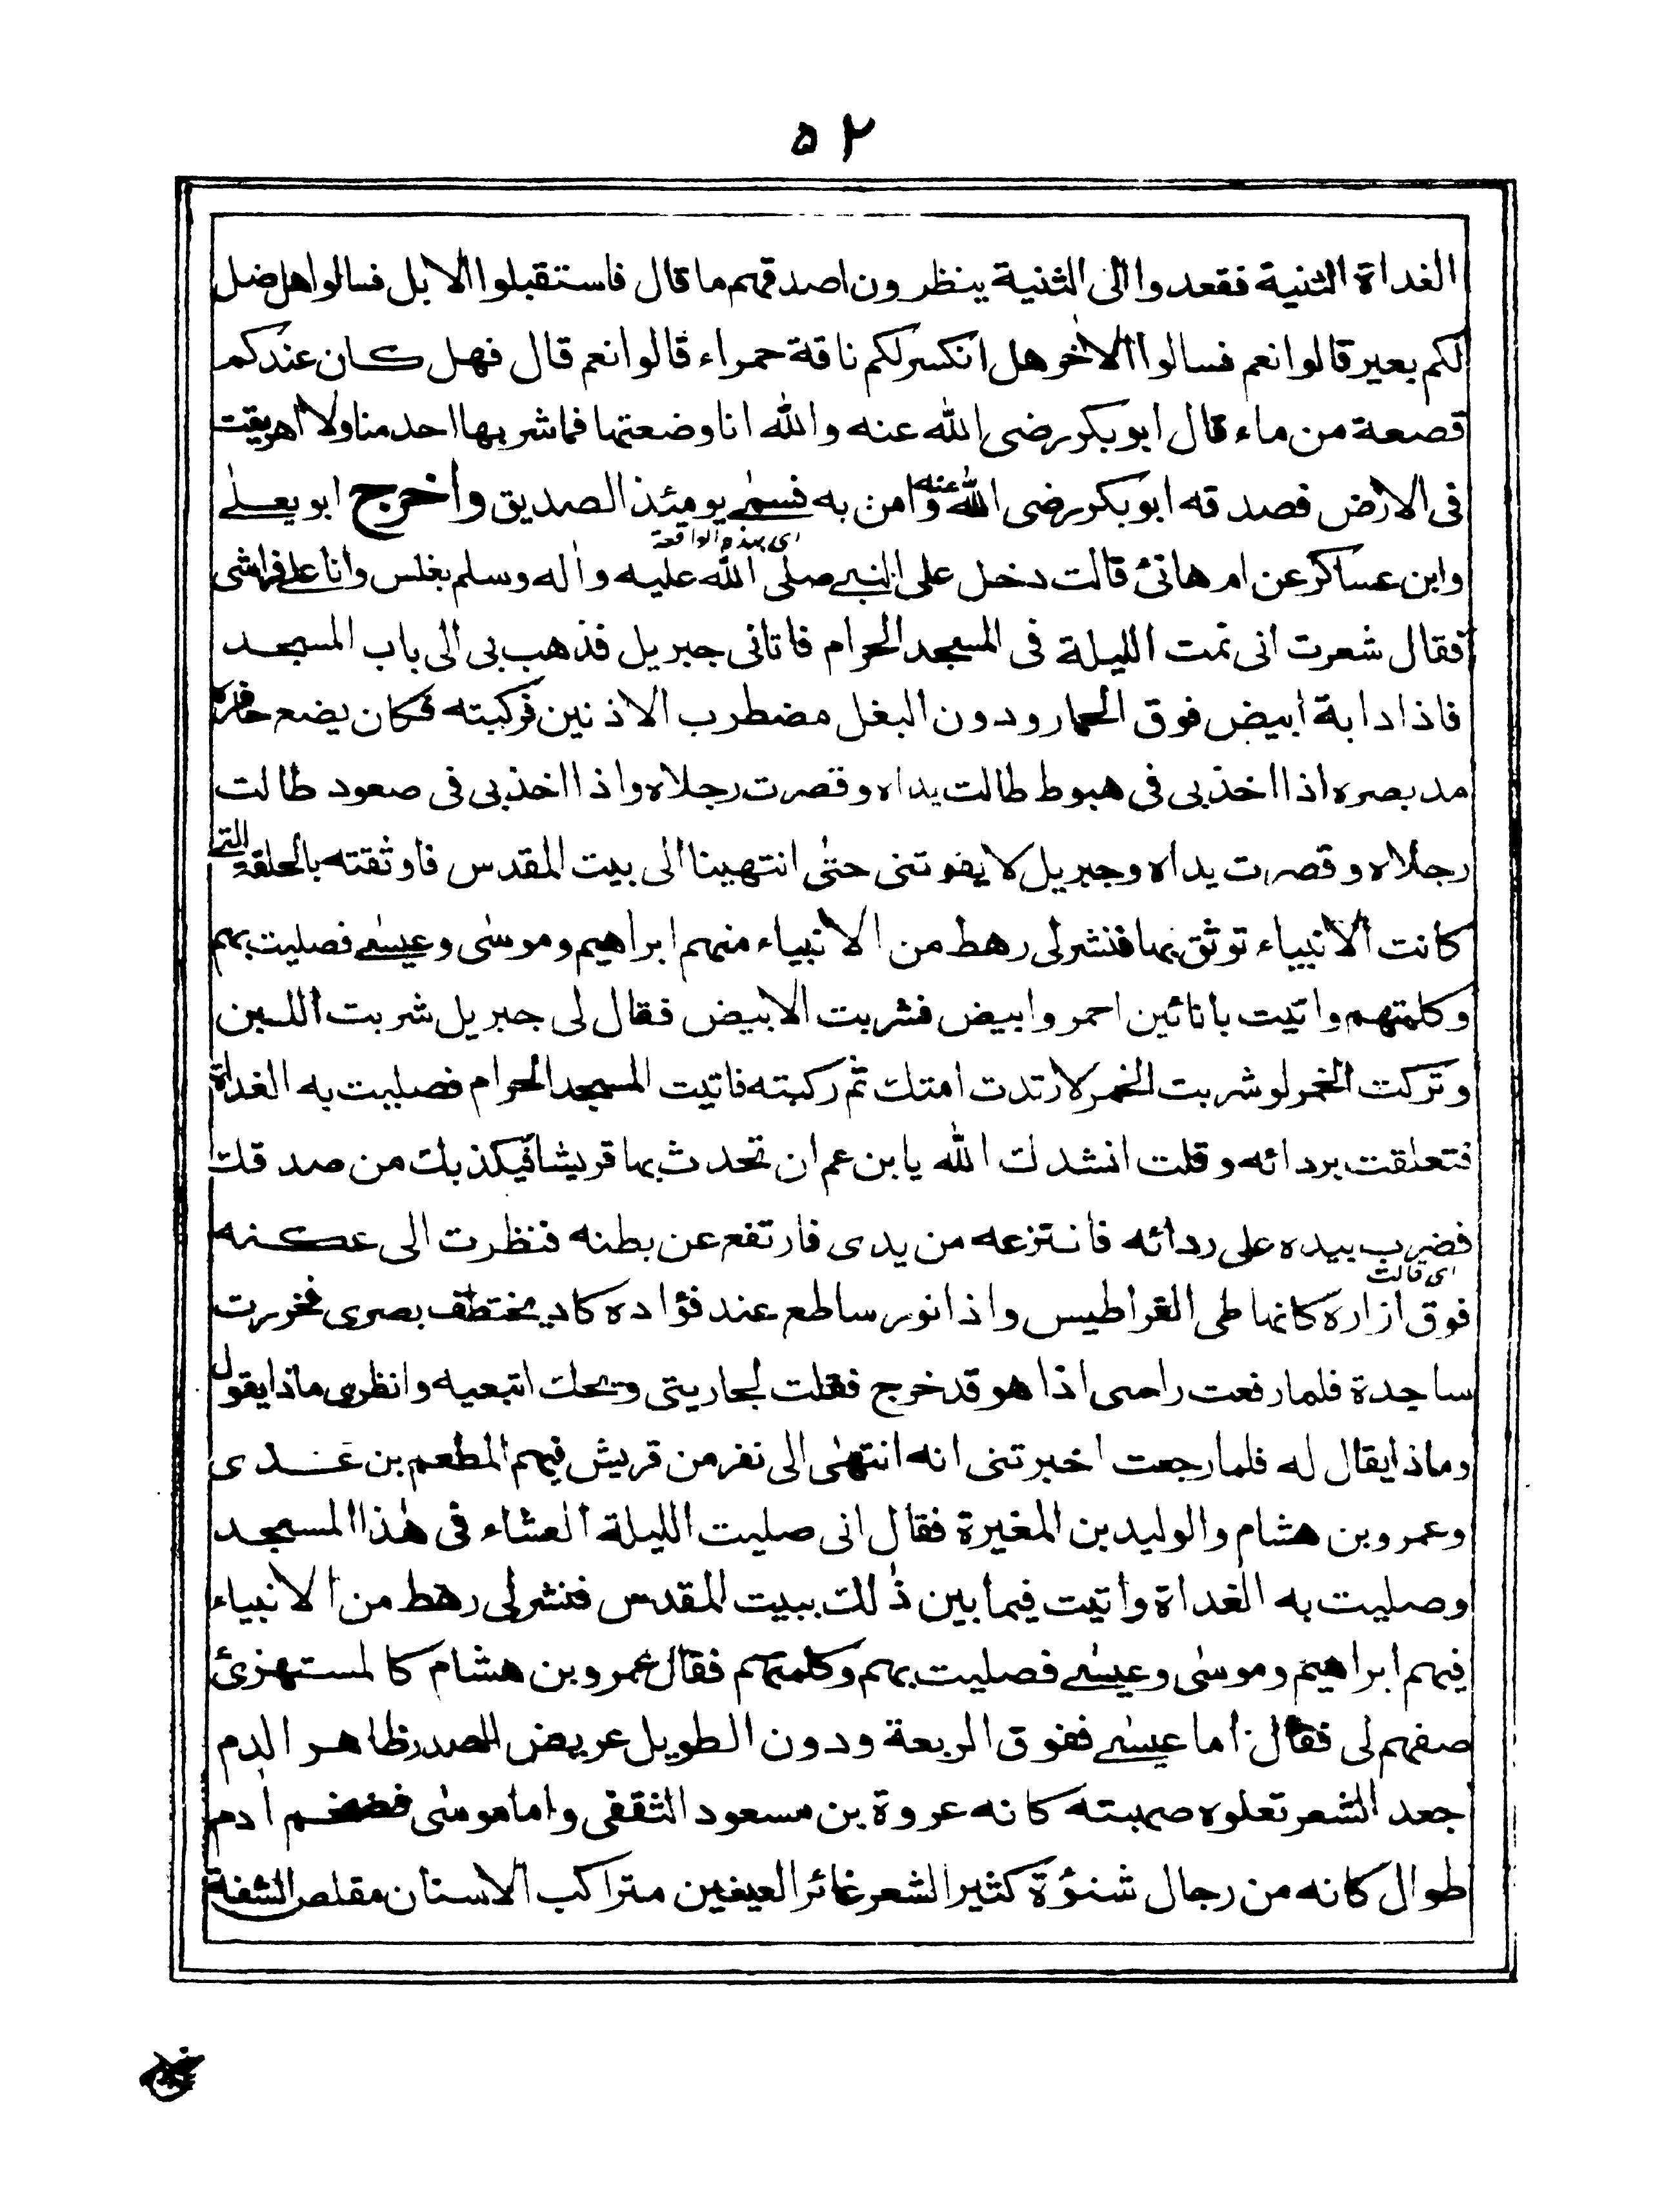 ۵۲
الغداة الثنية فقعدوا الى الثنية ينظرون اصدقهم ما قال فاستقبلوا الابل فسالوا هل ضل
لكم بعير قالوا نعم فسالوا الاخر هل انكسر لكم ناقة حمراء قالوا نعم قال فهل كان عندكم
قصعة من ماء قال ابو بكر رضى الله عنه والله انا وضعتها فما شربها احد منا ولا اهريقت
فى الارض فصدقه ابو بكر رضى الله عنه وامن به فسمى يومئذ الصديق واخرج ابو يعلى
اى بهذه الواقعة
وابن عساكر عن ام هانئ قالت دخل على النبى صلى الله عليه واٰله وسلم بغلس وانا على فراشى
فقال شعرت انى نمت الليلة فى المسجد الحرام فاتانى جبريل فذهب بى الى باب المسجد
فاذا دابة ابيض فوق الحمار ودون البغل مضطرب الاذنين فركبته فكان يضع حافره
مد بصره اذا اخذ بى فى هبوط طالت يداه وقصرت رجلاه واذا اخذ بى فى صعود طالت
رجلاه وقصرت يداه وجبريل لا يفوتنى حتى انتهينا الى بيت المقدس فاوثقته بالحلقة التى
كانت الانبياء توثق بها فنشر لى رهط من الانبياء منهم ابراهيم وموسى وعيسى فصليت بهم
وكلمتهم واتيت بانائين احمر وابيض فشربت الابيض فقال لى جبريل شربت اللبن
وتركت الخمر لو شربت الخمر لارتدت امتك ثم ركبته فاتيت المسجد الحرام فصليت به الغداة
فتعلقت بردائه وقلت انشدك الله يا بن عم ان تحدث بها قريشا فيكذبك من صدقك
فضرب بيده على ردائه فانتزعه من يدى فارتفع عن بطنه فنظرت الى عكنه
اى قالت
فوق ازاره كانها طى القراطيس واذا نور ساطع عند فؤاده كاد يختطف بصرى فخررت
ساجدة فلما رفعت راسى اذا هو قد خرج فقلت لجاريتى ويحك اتبعيه وانظرى ماذا يقول
وماذا يقال له فلما رجعت اخبرتنى انه انتهى الى نفر من قريش فيهم المطعم بن عدى
وعمرو بن هشام والوليد بن المغيرة فقال انى صليت الليلة العشاء فى هٰذا المسجد
وصليت به الغداة واتيت فيما بين ذٰلك ببيت المقدس فنشر لى رهط من الانبياء
فيهم ابراهيم وموسى وعيسى فصليت بهم وكلمتهم فقال عمرو بن هشام كالمستهزئ
صفهم لى فقال اما عيسى ففوق الربعة ودون الطويل عريض الصدر ظاهر الدم
جعد الشعر تعلوه صهبته كانه عروة بن مسعود الثقفى واما موسى فضخم اٰدم
طوال كانه من رجال شنؤة كثير الشعر غائر العينين متراكب الاسنان مقلص الشفة